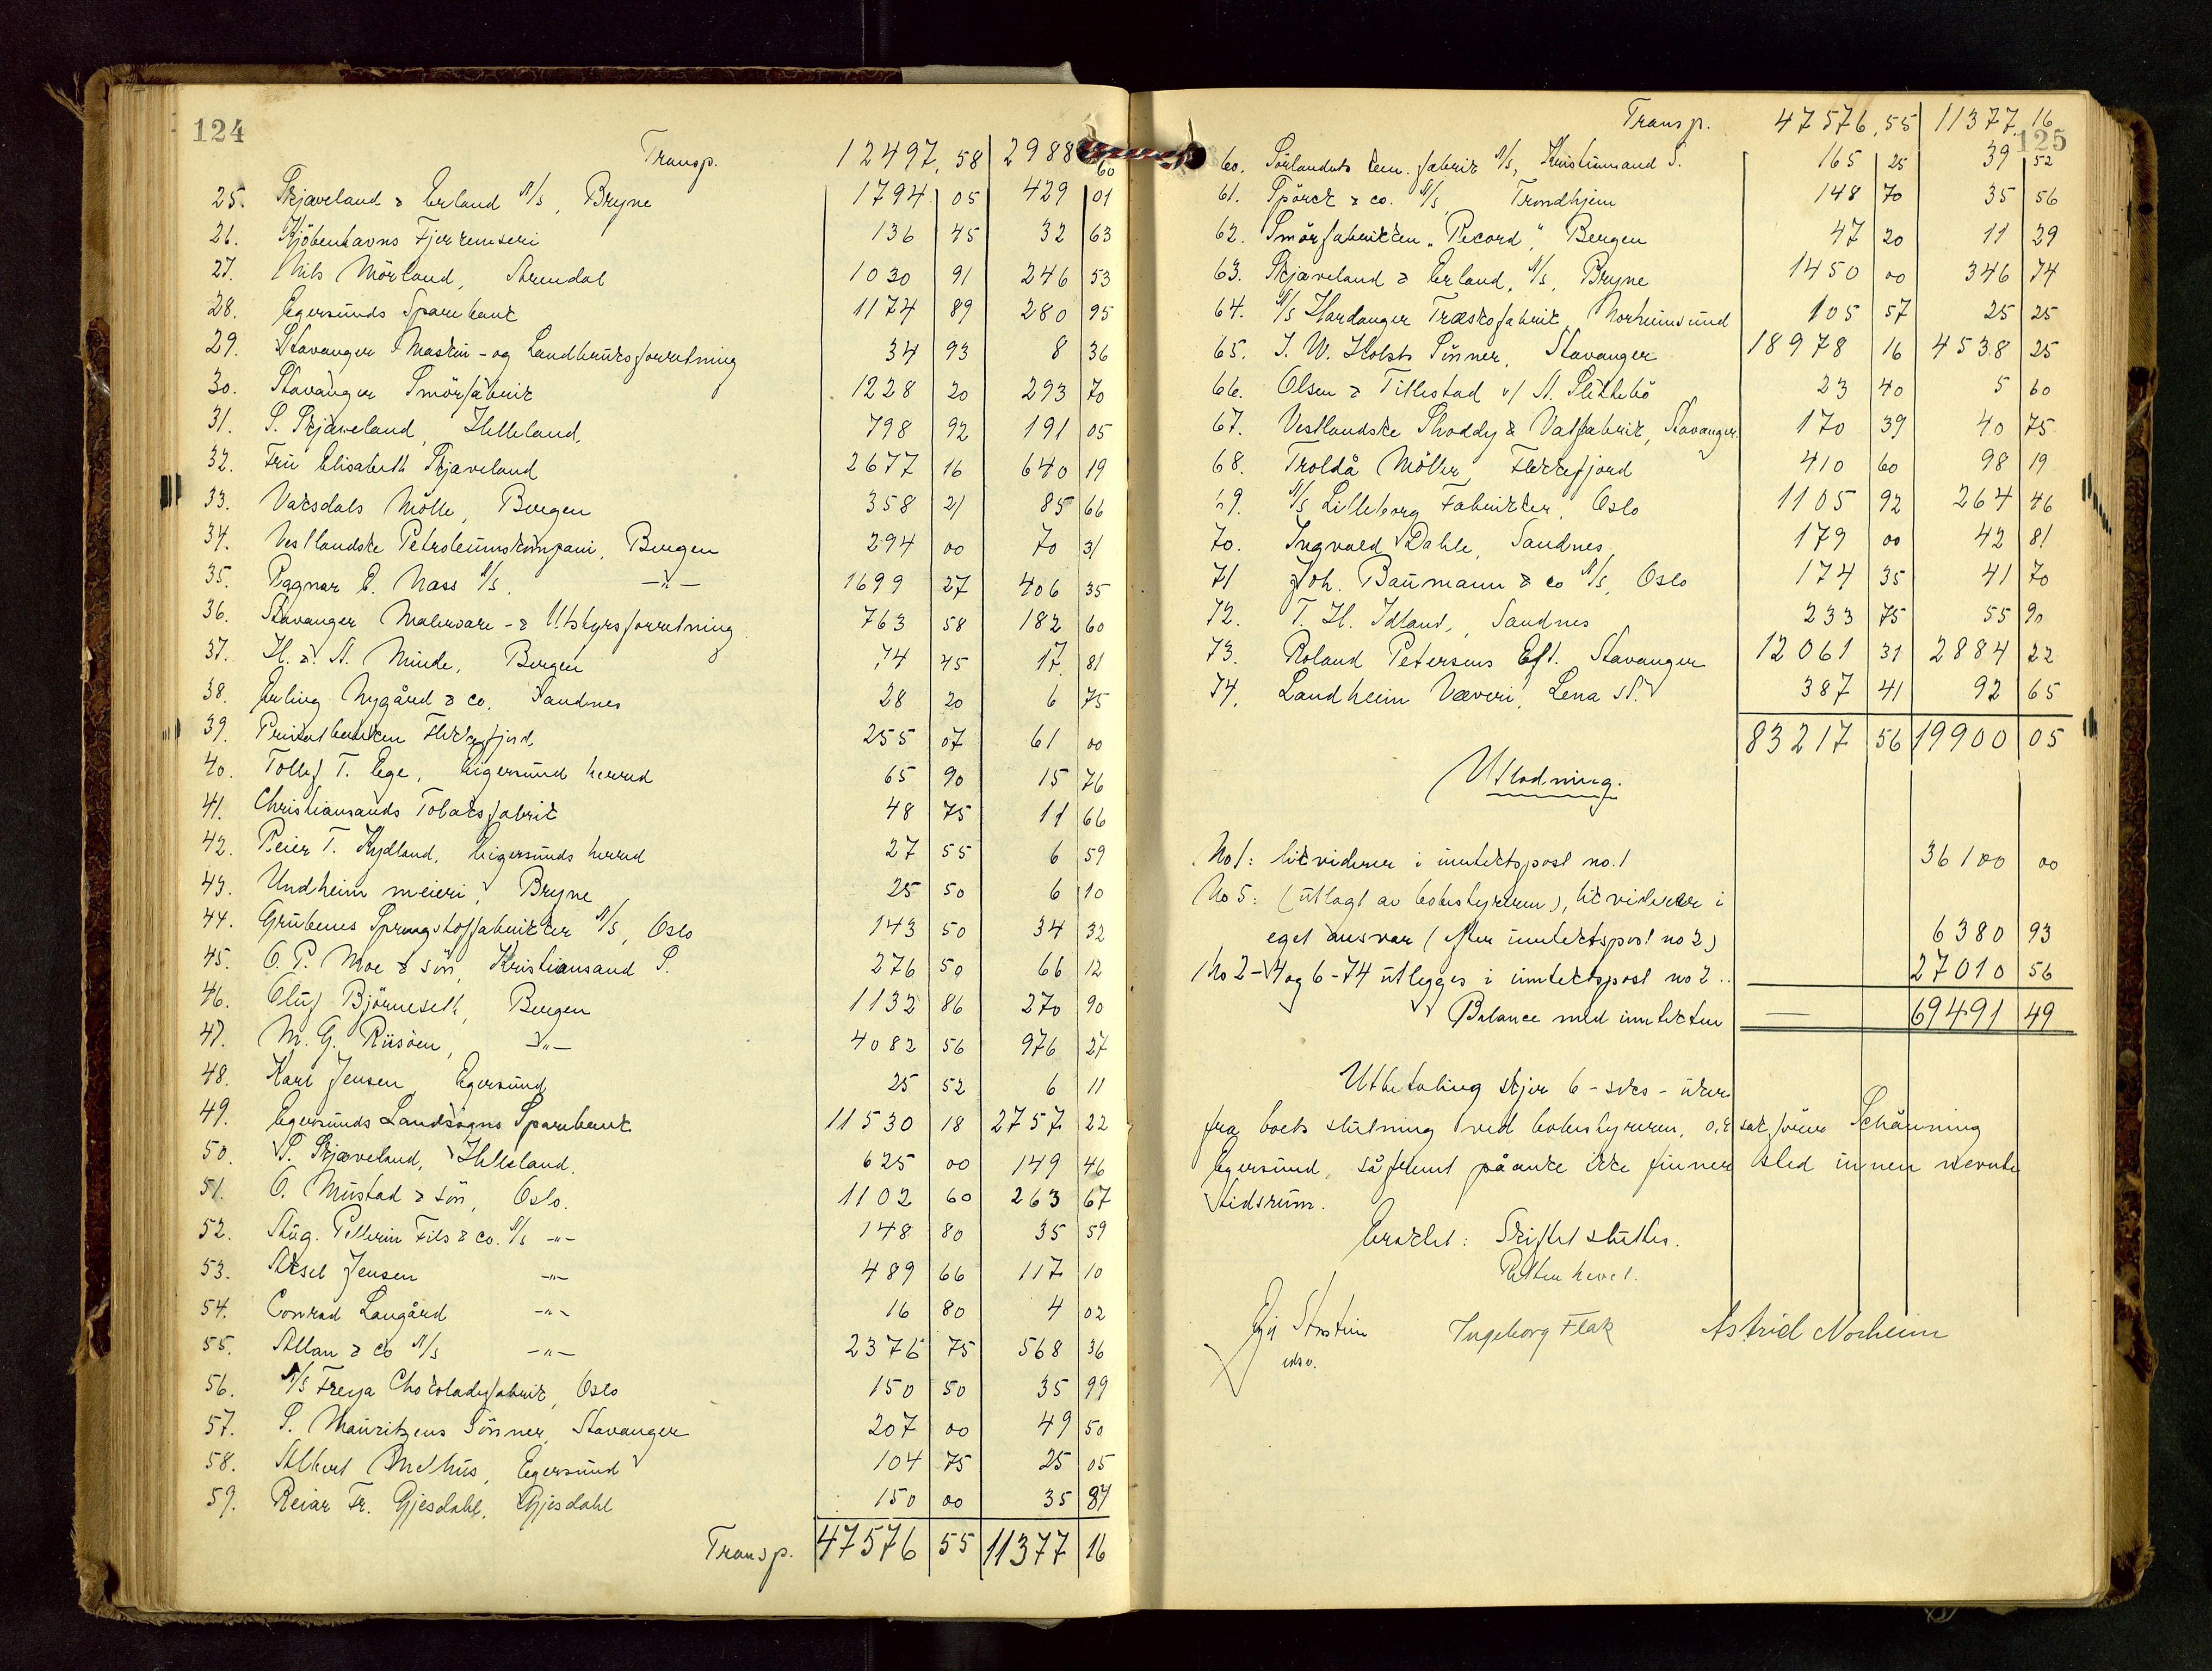 124
Transp. 12497,58 2988 60
25. Skjæveland & Erland A/s, Bryne 1794 05 429 01
26. Kjöbenhavns Fjerrenseri 136 45 32 63
27. Nils Mörland, Arendal 1030 91 246 53
28. Egersunds Sparebank 1174 89 280 95
29. Stavanger Maskin- og Landbruksforretning 34 93 8 36
30. Stavanger Smörfabrik 1228 20 293 70
31. S. Skjæveland, Helleland, 798 92 191 05
32. Fru Elisabeth Skjæveland 2677 16 640 19
33. Vaksdals Mölle, Bergen 358 21 85 66
34. Vestlandske Petroleumskompani, Bergen 294 00 70 31
35. Ragnar E. Næss A/s. —"— 1699 27 406 35
36. Stavanger Malervare- & Utstyrsforretning 763 58 182 60
37. H. & A. Minde, Bergen 74 45 17 81
38. Erling Nygård & co, Sandnes 28 20 6 75
39. Privatbanken Flekkefjord 255 07 61 00
40. Tollef T. Ege, Eigersund herred 65 90 15 76
41. Christiansands Tobaksfabrik 48 75 11 66
42. Reier T. Kydland, Eigersunds herred 27 55 6 59
43. Undheim meieri, Bryne 25 50 6 10
44. Grubenes Sprængstoffabrikker A/s, Oslo 143 50 34 32
45. O. P. Moe & sön, Kristiansand S. 276 50 66 12
46. Oluf Björneseth, Bergen 1132 86 270 90
47. M. G. Riisöen, —"— 4082 56 976 27
48. Karl Jensen, Egersund 25 52 6 11
49. Egersunds Landsogns Sparebank 11530 18 2757 22
50. S. Skjæveland, Helleland. 625 00 149 46
51. O. Mustad & sön, Oslo. 1102 60 263 67
52. Aug. Pellerin Fils & co. A/s —"— 148 80 35 59
53. Aksel Jensen —"— 489 66 117 10
54. Conrad Langård —"— 16 80 4 02
55. Allan & Co A/s —"— 2376 75 568 36
56. A/s Freya Chokoladefabrik, Oslo 150 50 35 99
57. S. Mauritzens Sönner, Stavanger 207 00 49 50
58. Albert Melhus, Egersund 104 75 25 05
59. Reiar Fr. Gjesdahl, Gjesdahl 150 00 35 87
Transp. 47576 55 11377 16
125
Transp. 47576,55 11377,16
60. Sörlandets kem. fabrik A/s, Kristiansand S. 165 25 39 52
61. Spörck & co. A/s, Trondhjem 148 70 35 56
62. Smörfabrikken "Record", Bergen 47 20 11 29
63. Skjæveland & Erland, A/s, Bryne 1450 00 346 74
64. A/s Hardanger Træskofabrik, Norheimsund 105 57 25 25
65. J. W. Holsts Sönner, Stavanger 18978 16 4538 25
66. Olsen & Tillestad v/ A. Slettebö 23 40 5 60
67. Vestlandske Shoddy & Vatfabrik, Stavanger. 170 39 40 75
68. Troldå Möller, Flekkefjord 410 60 98 19
69. A/s Lilleborg Fabrikker, Oslo 1105 92 264 46
70. Ingvald Dahle, Sandnes, 179 00 42 81
71 Joh. Baumann & co A/s, Oslo 174 35 41 70
72. T. H. Idland, Sandnes 233 75 55 90
73. Roland Petersens Eft. Stavanger 12061 31 2884 22
74. Landheim Væveri, Lena st. 387 41 92 65
83217 56 19900 05
Utlodning.
No 1: likviderer i inntektspost no. 1 36100 00
No 5: (utlagt av bobestyreren), likviderer i
eget ansvar (efter inntektspost no 2) 6380 93
No 2-4 og 6-74 utlegges i inntektspost no 2.. 27010 56
Balance med inntekten — 69491 49
Utbetaling skjer 6-seks-uker
fra boets slutning ved bobestyreren, o.r.sakförer Schänning
Egersund, såfremt påanke ikke finner sted innen nevnte
tidsrum.
Eraktet: Skiftet sluttes.
Retten hevet.
Ingeborg Flak Astrid Norheim
edsv.